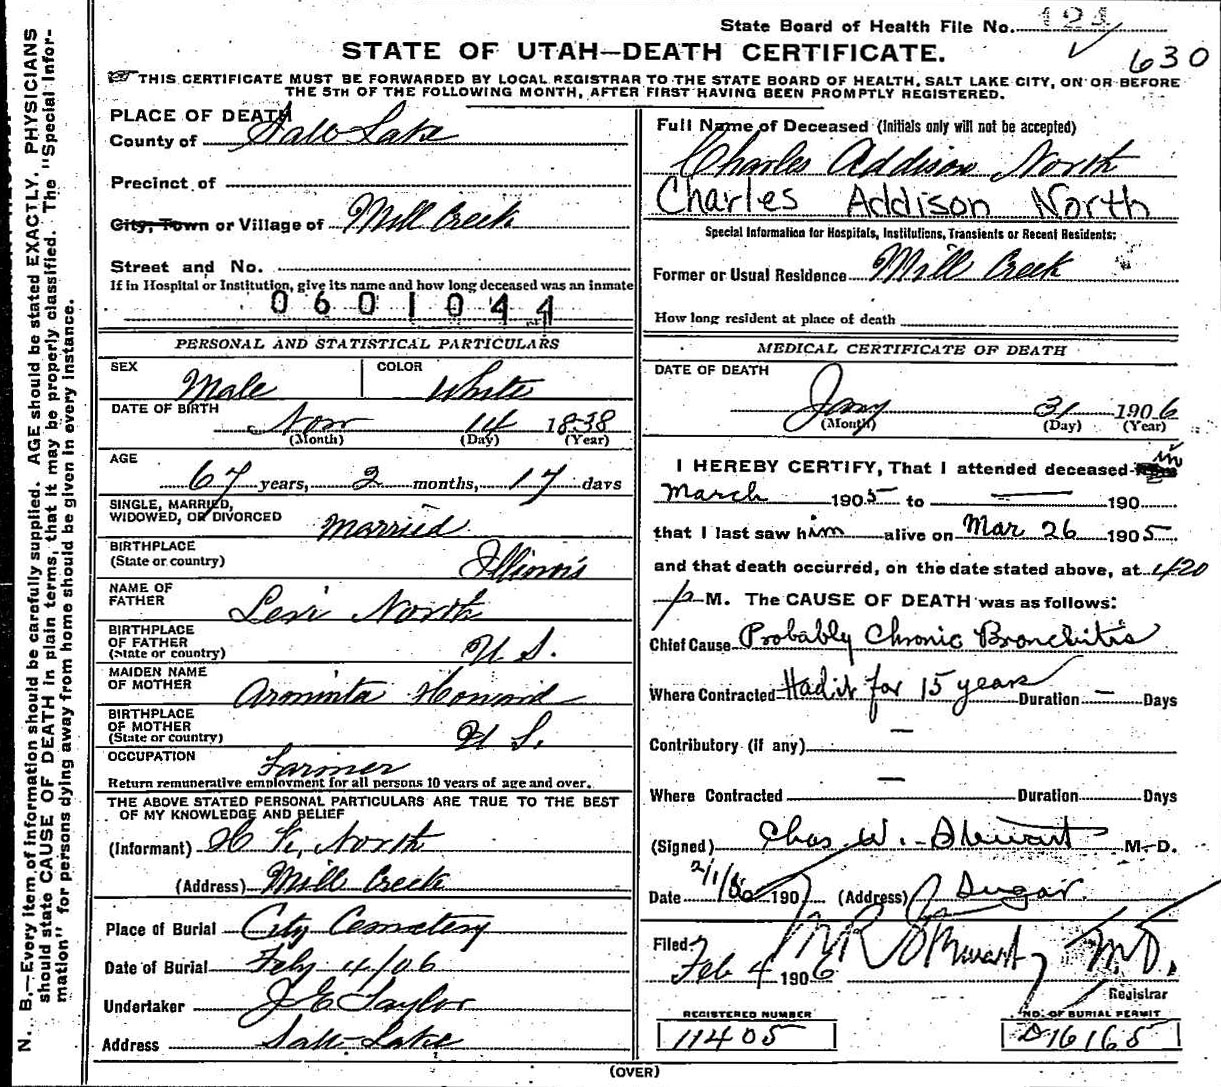 State Board of Health File No. 121
630
STATE OF UTAH—DEATH CERTIFICATE.
THIS CERTIFICATE MUST BE FORWARDED BY LOCAL REGISTRAR TO THE STATE BOARD OF HEALTH, SALT LAKE CITY, ON OR BEFORE
THE 5TH OF THE FOLLOWING MONTH, AFTER FIRST HAVING BEEN PROMPTLY REGISTERED.
N. B.—Every item of information should be carefully supplied. AGE should be stated EXACTLY. PHYSICIANS
should state CAUSE OF DEATH in plain terms, that it may be properly classified. The "Special Infor-
mation" for persons dying away from home should be given in every instance.
PLACE OF DEATH
County of Salt Lake
Precinct of
City, Town or Village of Mill Creek
Street and No.
If in Hospital or Institution, give its name and how long deceased was an inmate
0601044
PERSONAL AND STATISTICAL PARTICULARS
SEX Male COLOR White
DATE OF BIRTH Nov 14 1838
(Month) (Day) (Year)
AGE
67 years, 2 months, 17 days
SINGLE, MARRIED,
WIDOWED, OR DIVORCED Married
BIRTHPLACE
(State or country) Illinois
NAME OF
FATHER Levi North
BIRTHPLACE
OF FATHER
(State or country) U S.
MAIDEN NAME
OF MOTHER Arminta Howard
BIRTHPLACE
OF MOTHER
(State or country) U S.
OCCUPATION Farmer
Return remunerative employment for all persons 10 years of age and over.
THE ABOVE STATED PERSONAL PARTICULARS ARE TRUE TO THE BEST
OF MY KNOWLEDGE AND BELIEF
(Informant) North
(Address) Mill Creek
Place of Burial City Cemetery
Date of Burial Feby 4/06
Undertaker J E Taylor
Address Salt Lake
Full Name of Deceased (Initials only will not be accepted)
Charles Addison North
Charles Addison North
Special Information for Hospitals, Institutions, Transients or Recent Residents:
Former or Usual Residence Mill Creek
How long resident at place of death
MEDICAL CERTIFICATE OF DEATH
DATE OF DEATH
Jany 31 1906
(Month) (Day) (Year)
I HEREBY CERTIFY, That I attended deceased in
March 1905 to — 190
that I last saw him alive on Mar 26 1905
and that death occurred, on the date stated above, at 420
p M. The CAUSE OF DEATH was as follows:
Chief Cause Probably Chronic Bronchitis
Where Contracted Had it for 15 years Duration — Days
Contributory (if any) —
Where Contracted — Duration Days
(Signed) Chas W. Stewart M. D.
Date 2/1/06 190 (Address) Sugar
Filed
Feb 4 1906 Stewart MD.
Registrar
REGISTERED NUMBER
11405
NO. OF BURIAL PERMIT
D16165
(OVER)